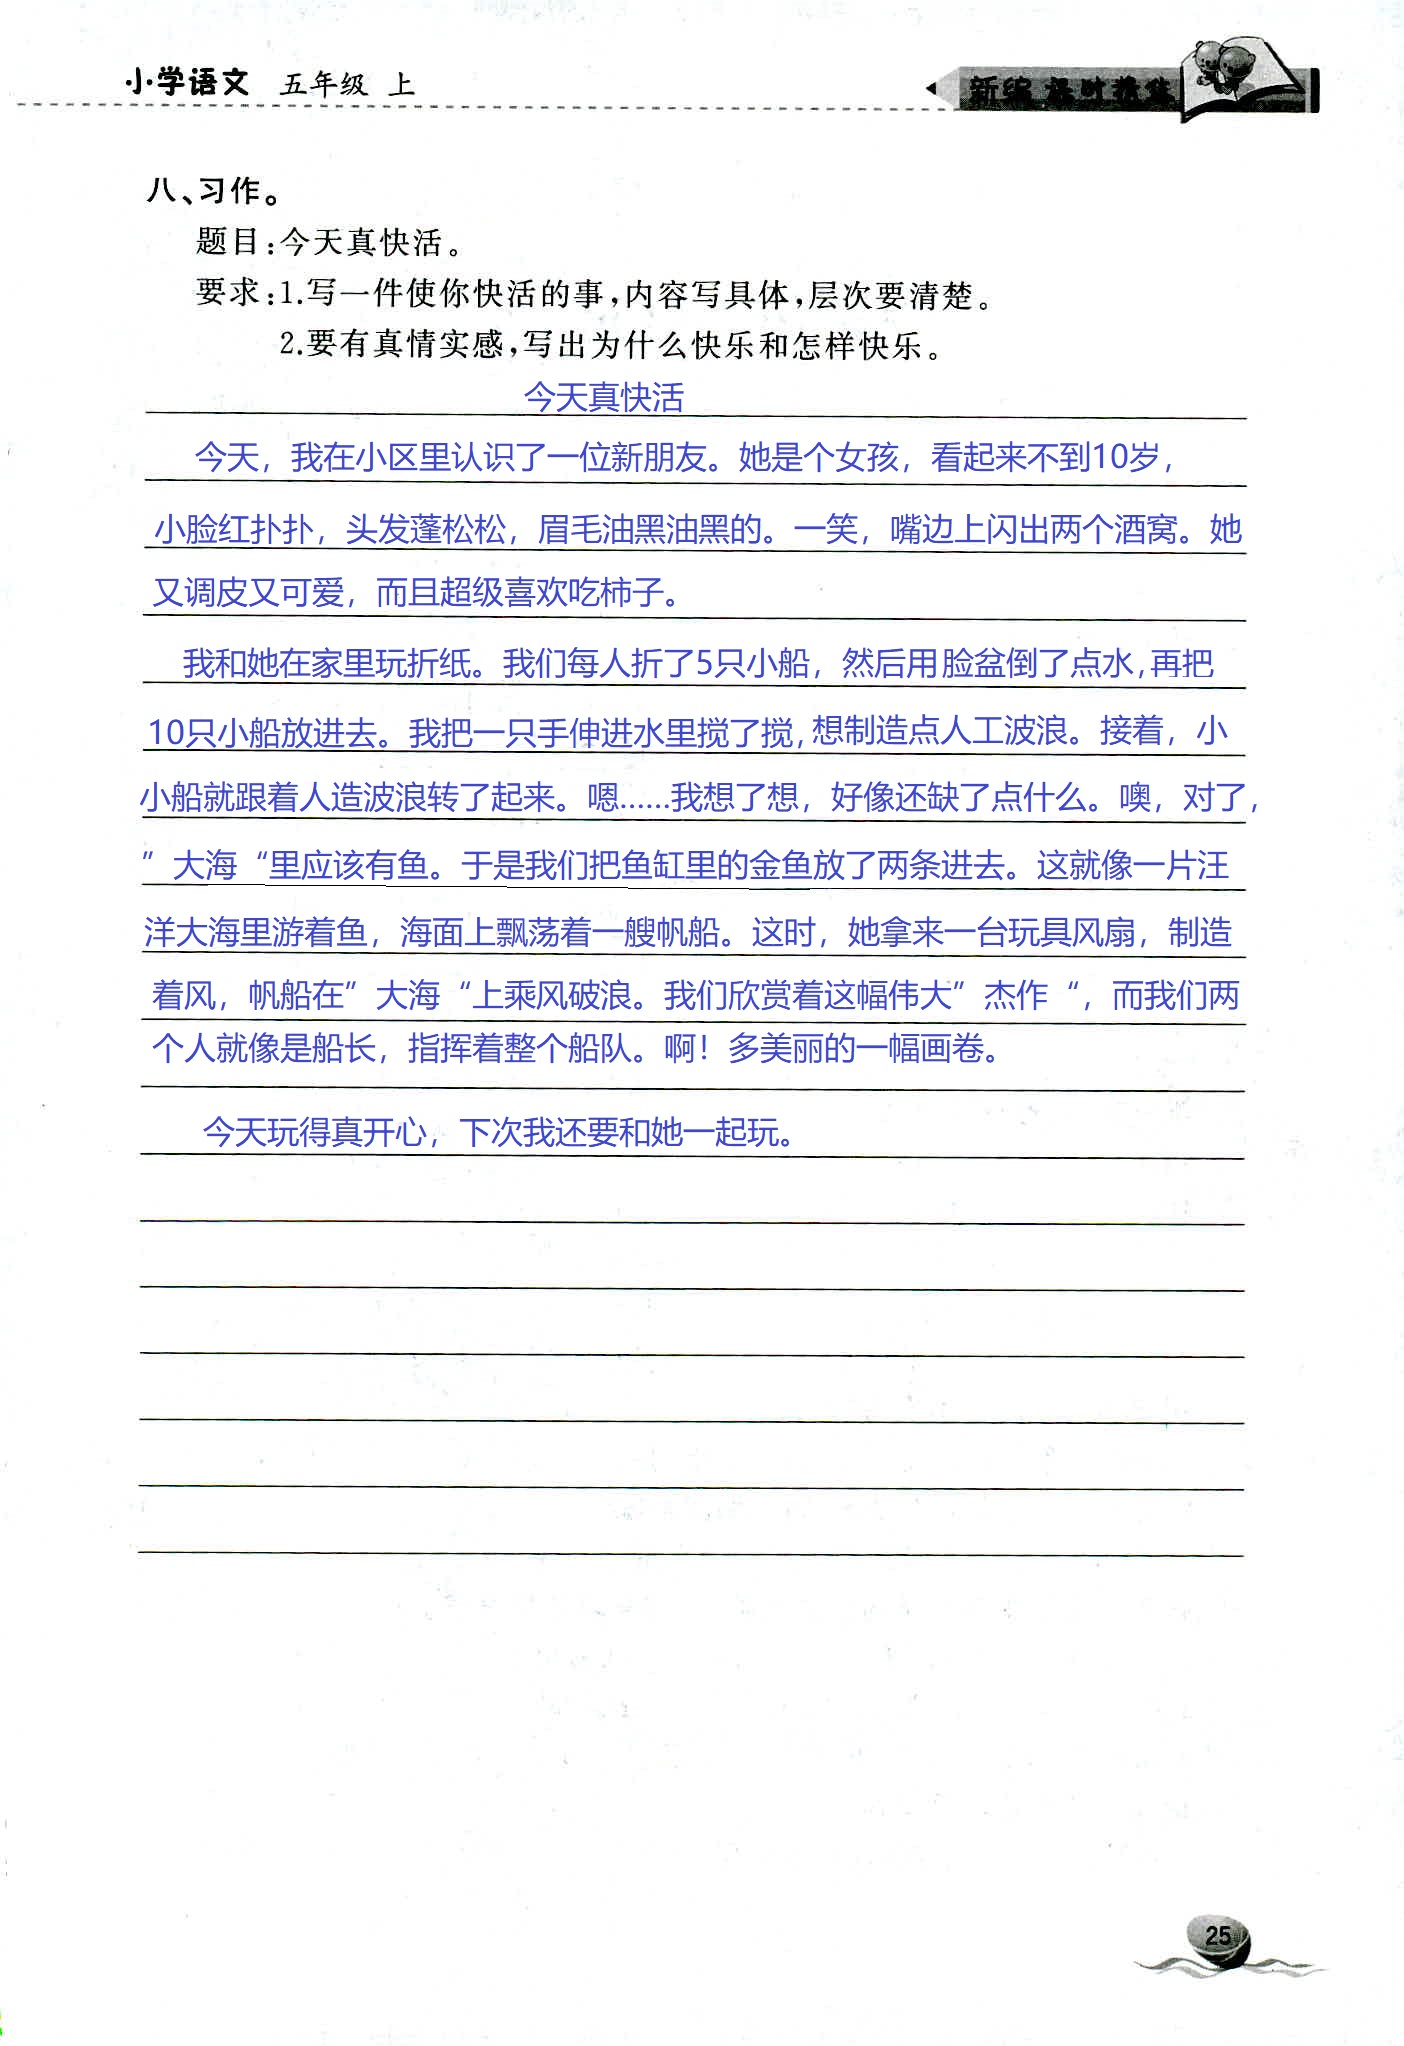 小学语文 五年级 上
新编 课时精练
八、习作。
题目:今天真快活。
要求:1.写一件使你快活的事,内容写具体,层次要清楚。
2.要有真情实感,写出为什么快乐和怎样快乐。
今天真快活
今天，我在小区里认识了一位新朋友。她是个女孩，看起来不到10岁，
小脸红扑扑，头发蓬松松，眉毛油黑油黑的。一笑，嘴边上闪出两个酒窝。她
又调皮又可爱，而且超级喜欢吃柿子。
我和她在家里玩折纸。我们每人折了5只小船，然后用脸盆倒了点水，再把
10只小船放进去。我把一只手伸进水里搅了搅，想制造点人工波浪。接着，小
小船就跟着人造波浪转了起来。嗯……我想了想，好像还缺了点什么。噢，对了，
”大海“里应该有鱼。于是我们把鱼缸里的金鱼放了两条进去。这就像一片汪
洋大海里游着鱼，海面上飘荡着一艘帆船。这时，她拿来一台玩具风扇，制造
着风，帆船在”大海“上乘风破浪。我们欣赏着这幅伟大”杰作“，而我们两
个人就像是船长，指挥着整个船队。啊！多美丽的一幅画卷。
今天玩得真开心，下次我还要和她一起玩。
25